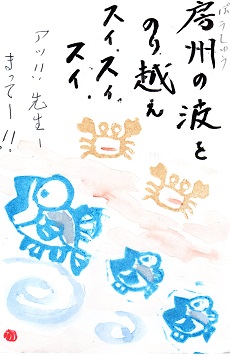 房州の波を
ぼうしゅう
のり越え
スイ、スイ、
スイ、
アッ!! 先生ー
まってー!!